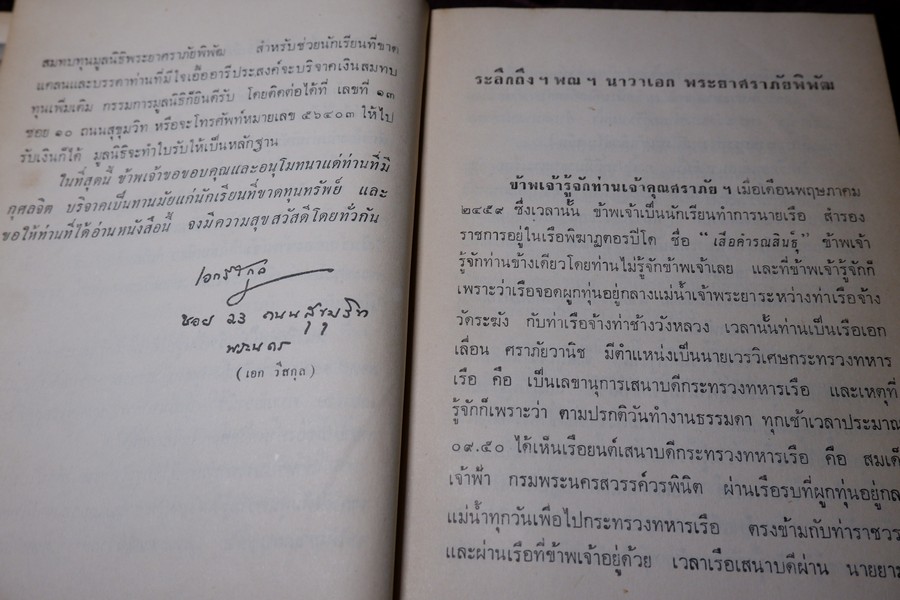 สมทบทุนมูลนิธิพระยาศราภัยพิพัฒ สำหรับช่วยนักเรียนที่ขาด
แคลนและบรรดาท่านที่มีใจเอื้ออารีประสงค์จะบริจาคเงินสมทบ
ทุนเพิ่มเติม กรรมการมูลนิธิก็ยินดีรับ โดยติดต่อได้ที่ เลขที่ ๑๓
ซอย ๑๐ ถนนสุขุมวิท หรือจะโทรศัพท์หมายเลข ๕๖๔๐๓ ให้ไป
รับเงินก็ได้ มูลนิธิจะทำใบรับให้เป็นหลักฐาน
ในที่สุดนี้ ข้าพเจ้าขอขอบคุณและอนุโมทนาแด่ท่านที่มี
กุศลจิต บริจาคเป็นทานมัยแก่นักเรียนที่ขาดทุนทรัพย์ และ
ขอให้ท่านที่ได้อ่านหนังสือนี้ จงมีความสุขสวัสดีโดยทั่วกัน
เอก วีสกุล
ซอย 23 ถนนสุขุมวิท
พระนคร
(เอก วีสกุล)
ระลึกถึง ฯ พณ ฯ นาวาเอก พระยาศราภัยพิพัฒ
ข้าพเจ้ารู้จักท่านเจ้าคุณศราภัย ฯ เมื่อเดือนพฤษภาคม
๒๔๕๙ ซึ่งเวลานั้น ข้าพเจ้าเป็นนักเรียนทำการนายเรือ สำรอง
ราชการอยู่ในเรือพิฆาฏตอรปิโด ชื่อ "เสือคำรณสินธุ์" ข้าพเจ้
รู้จักท่านข้างเดียวโดยท่านไม่รู้จักข้าพเจ้าเลย และที่ข้าพเจ้ารู้จักก็
เพราะว่าเรือจอดผูกทุ่นอยู่กลางแม่น้ำเจ้าพระยาระหว่างท่าเรือจ้าง
วัดระฆัง กับท่าเรือจ้างท่าช้างวังหลวง เวลานั้นท่านเป็นเรือเอก
เลื่อน ศราภัยวานิช มีตำแหน่งเป็นนายเวรวิเศษกระทรวงทหาร
เรือ คือ เป็นเลขานุการเสนาบดีกระทรวงทหารเรือ และเหตุที่
รู้จักก็เพราะว่า ตามปรกติวันทำงานธรรมดา ทุกเช้าเวลาประมาณ
๐๙.๕๐ ได้เห็นเรือยนต์เสนาบดีกระทรวงทหารเรือ คือ สมเด็
เจ้าฟ้า กรมพระนครสวรรค์วรพินิต ผ่านเรือรบที่ผูกทุ่นอยู่กล
แม่น้ำทุกวันเพื่อไปกระทรวงทหารเรือ ตรงข้ามกับท่าราชวร
และผ่านเรือที่ข้าพเจ้าอยู่ด้วย เวลาเรือเสนาบดีผ่าน นายยาม